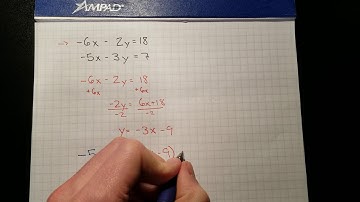 AMPAD
→ -6x - 2y = 18
-5x - 3y = 7
-6x - 2y = 18
+6x +6x
-2y = 6x+18
-2 -2
y = -3x - 9
-5 -9)